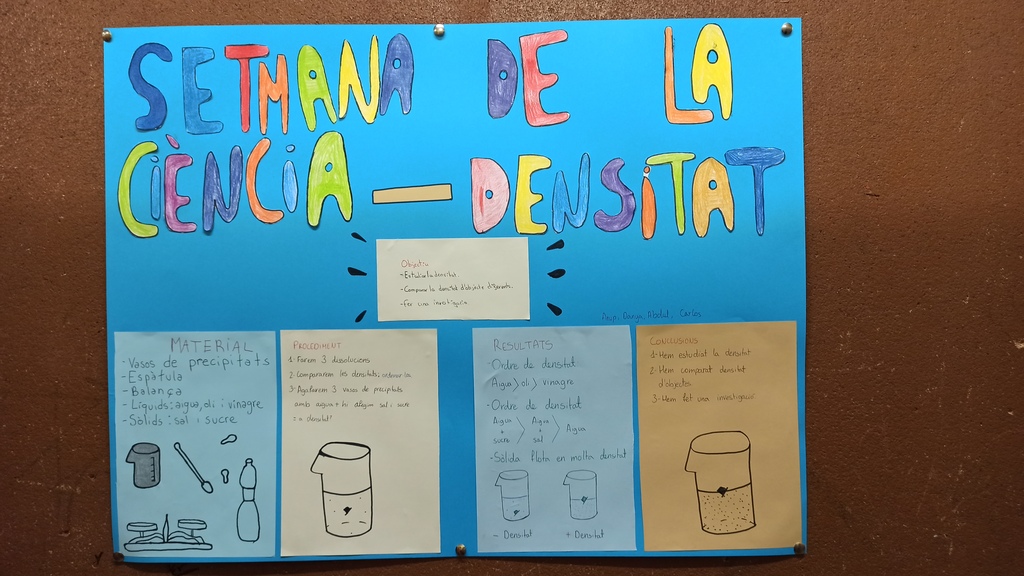 SETMANA DE LA
CIÈNCIA — DENSITAT
Objectiu
-Estudiar la densitat.
-Comparar la densitat d'objects diferents.
-Fer una investigació.
Danya, Abdul, Carlos
MATERIAL
-Vasos de precipitats
-Espàtula
-Balança
-Líquids: aigua, oli i vinagre
-Sòlids: sal i sucre
PROCEDIMENT
1-Farem 3 dissolucions
2-Compararem les densitats,
3-Agafarem 3 vasos de precipitats
amb aigua + hi afegim sal i sucre
densitat?
RESULTATS
-Ordre de densitat
Aigua > oli > vinagre
-Ordre de densitat
Aigua + sucre > Aigua + sal > Aigua
-Sòlida flota en molta densitat
- Densitat + Densitat
CONCLUSIONS
1-Hem estudiat la densitat
2-Hem comparat densitat
d'objectes
3-Hem fet una investigació